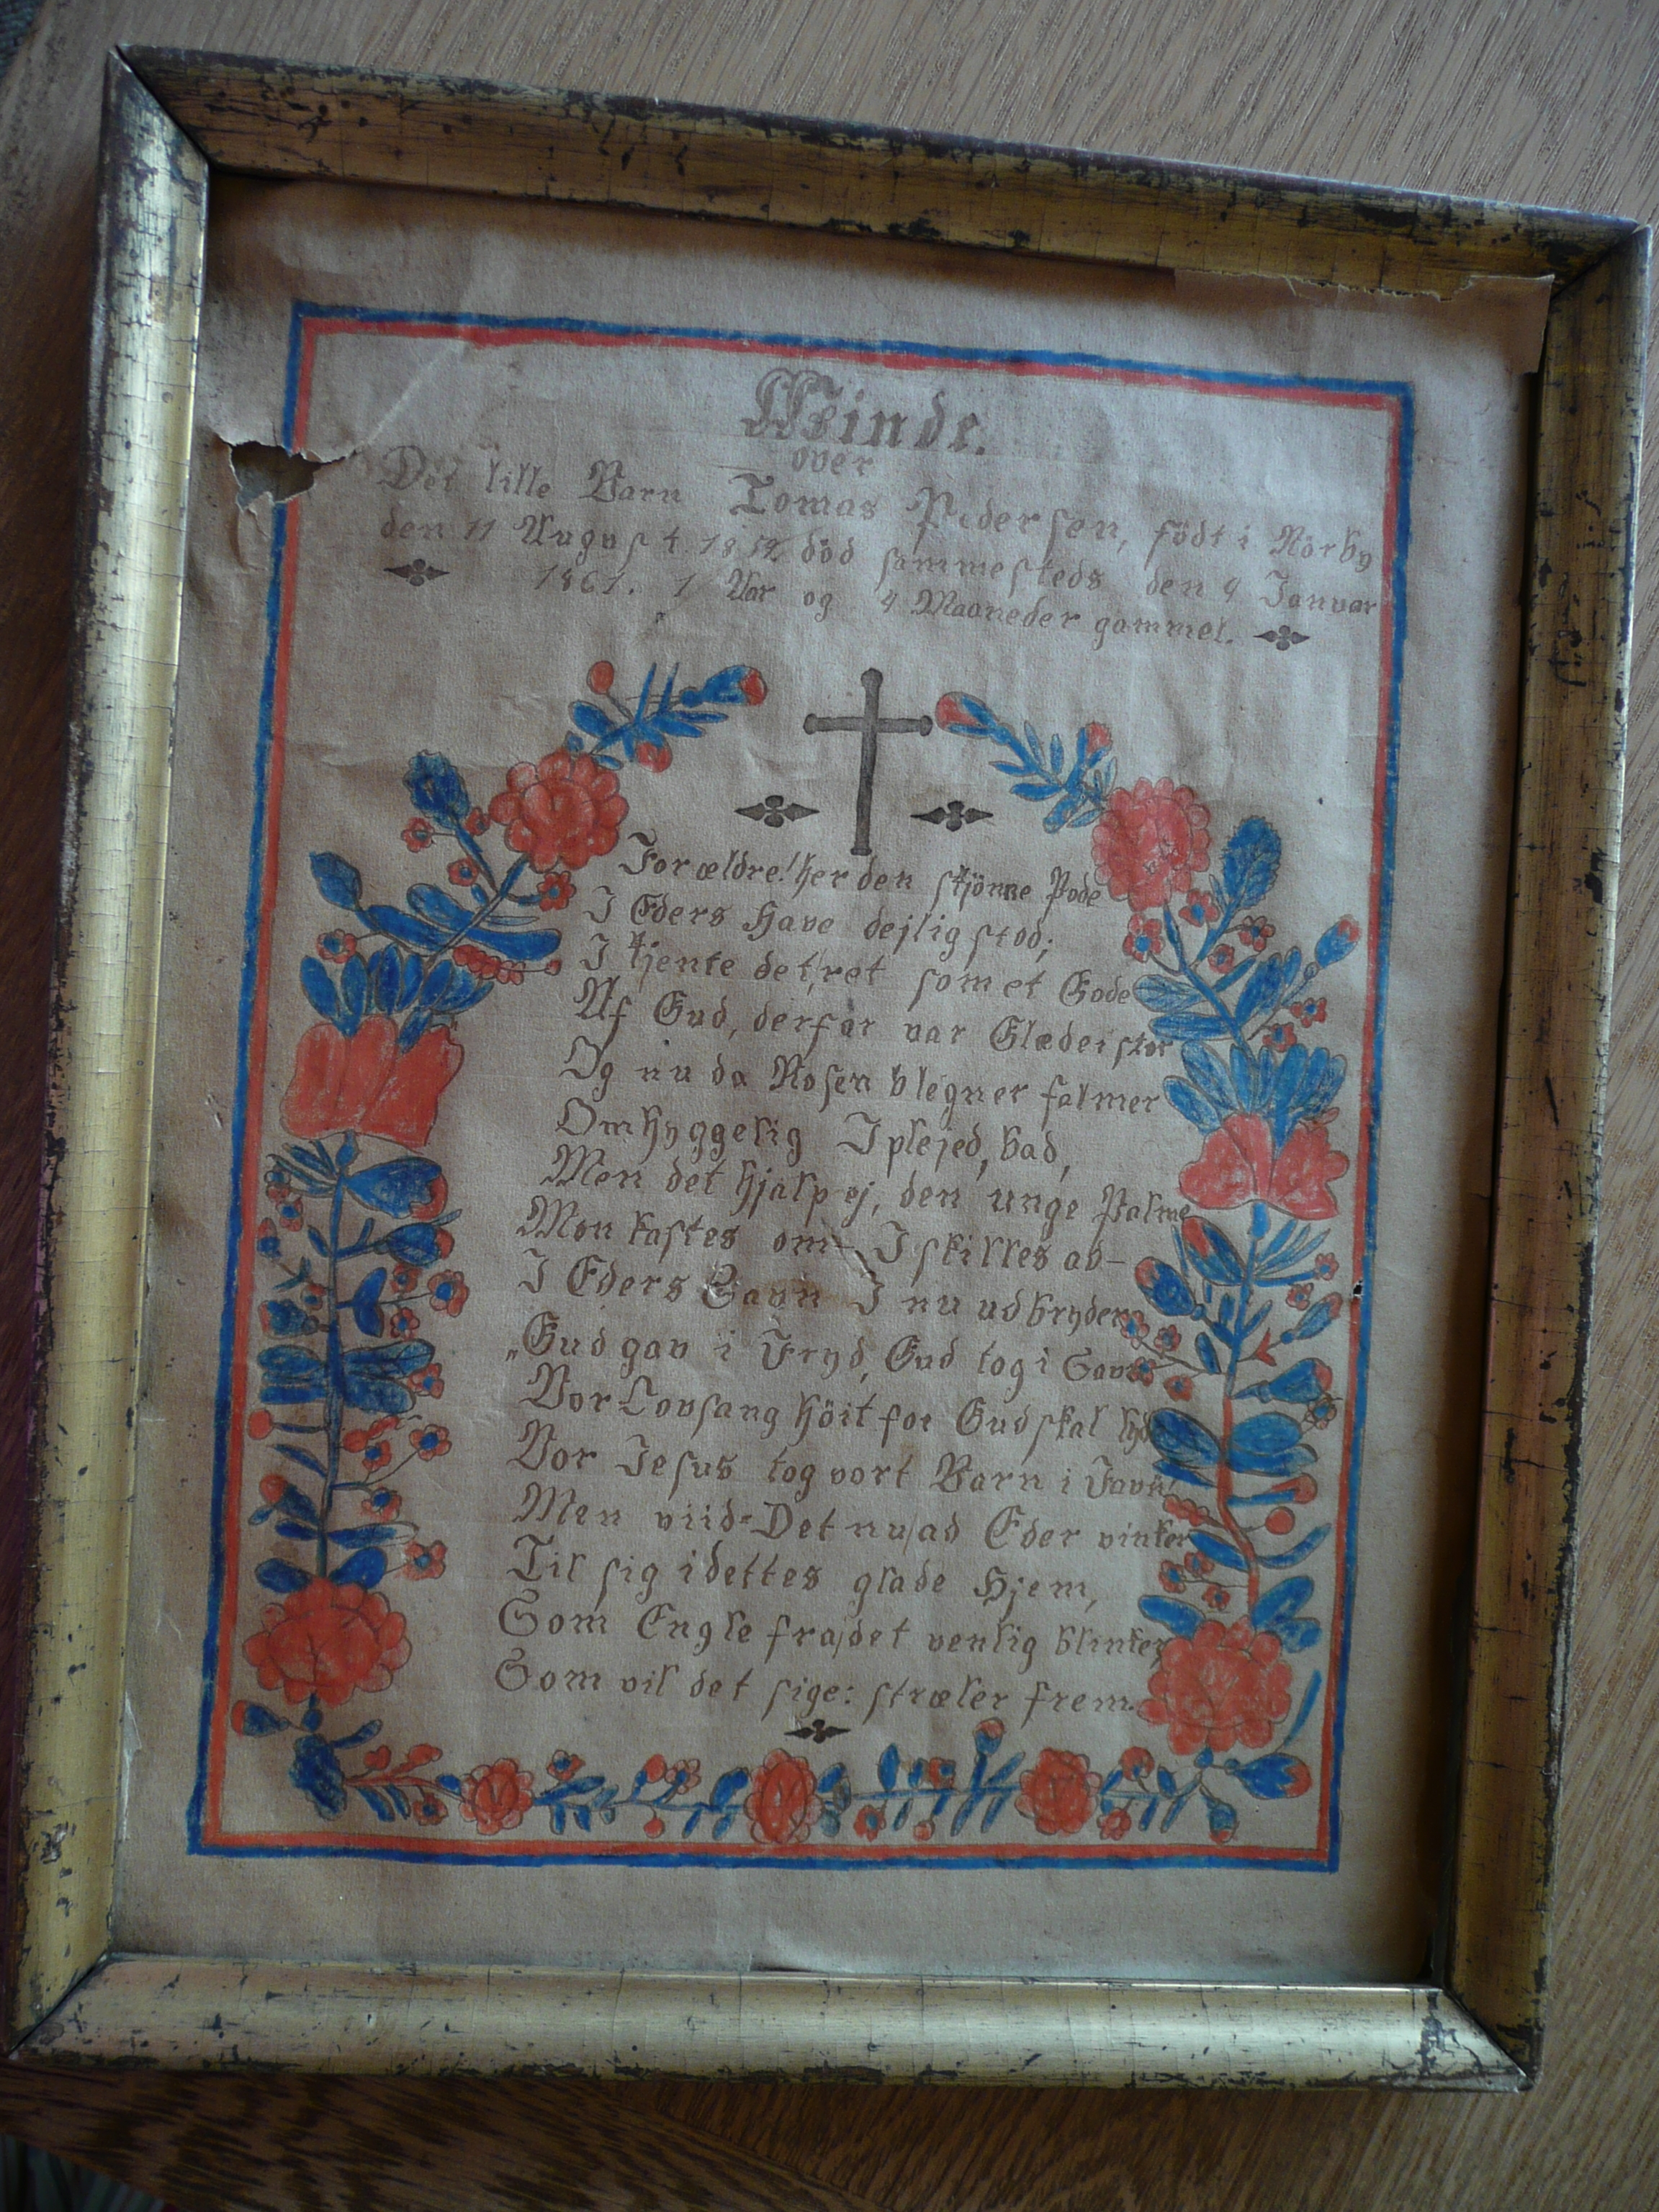 Minde.
over
Det lille Barn Tomas Pedersen, födt i Nörby
den 11 August död sammesteds den 9 Januar
1861. 1 Aar og 4 Maaneder gammel.
Forældre! her den skjönne Pode
I Eders Have dejlig stod;
I kjente det, ret som et Gode
Af Gud, derfor var Glæde i stor
Og nu da Rosen blegner falmer
Omhyggelig I plejed, bad,
Men det hjalp ej, den unge Palme
Mon kastes om- I skilles ad-
I Eders Savn I nu udbryder
„Gud gav i Fryd, Gud tog i Savn
Vor Lovsang höit for Gud skal lyde
Vor Jesus tog vort Barn i Favn!
Men viid- Det nu, ad Eder vinker
Til sig i dettes glade Hjem,
Som Engle fra, det venlig blinker,
Som vil det sige: stræler frem.